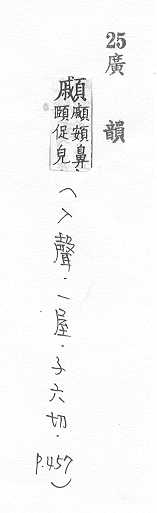 25 廣韻
顣 顣頞鼻
頤促皃
(入聲.一屋.子六切. p.457)